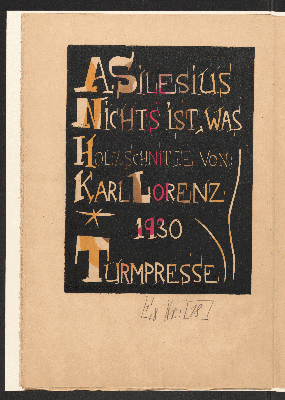 A SILESIUS
NICHTS IST, WAS
HOLZSCHNITTE VON
KARL LORENZ
1930
TURMPRESSE
[18]